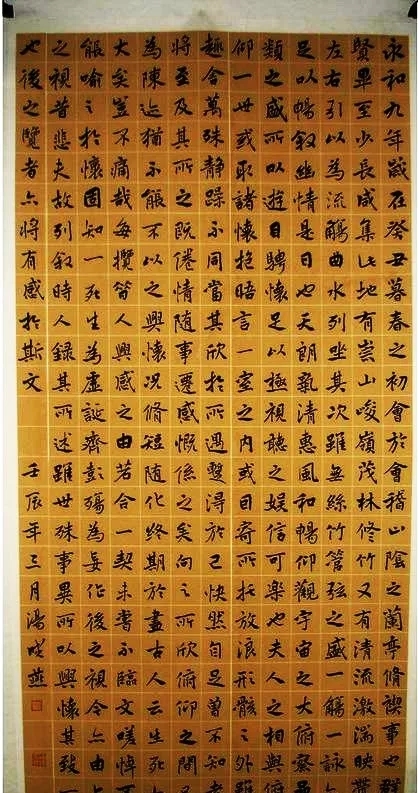 永和九年歲在癸丑暮春之初會於會稽山陰之蘭亭脩禊事也群
賢畢至少長咸集此地有崇山峻嶺茂林修竹又有清流激湍映帶
左右引以為流觴曲水列坐其次雖無絲竹管弦之盛一觴一詠亦
足以暢敘幽情是日也天朗氣清惠風和暢仰觀宇宙之大俯察品
類之盛所以遊目騁懷足以極視聽之娛信可樂也夫人之相與俯
仰一世或取諸懷抱晤言一室之內或因寄所托放浪形骸之外雖
趣舍萬殊靜躁不同當其欣於所遇暫得於己快然自足曾不知老
將至及其所之既倦情隨事遷感慨係之矣向之所欣俯仰之間已
為陳迹猶不能不以之興懷況脩短隨化終期於盡古人云生死亦
大矣豈不痛哉每攬昔人興感之由若合一契未嘗不臨文嗟悼不
能喻之於懷固知一死生為虛誕齊彭殤為妄作後之視今亦由今
之視昔悲夫故列敘時人錄其所述雖世殊事異所以興懷其致一
也後之覽者亦將有感於斯文 壬辰年三月湯成燕